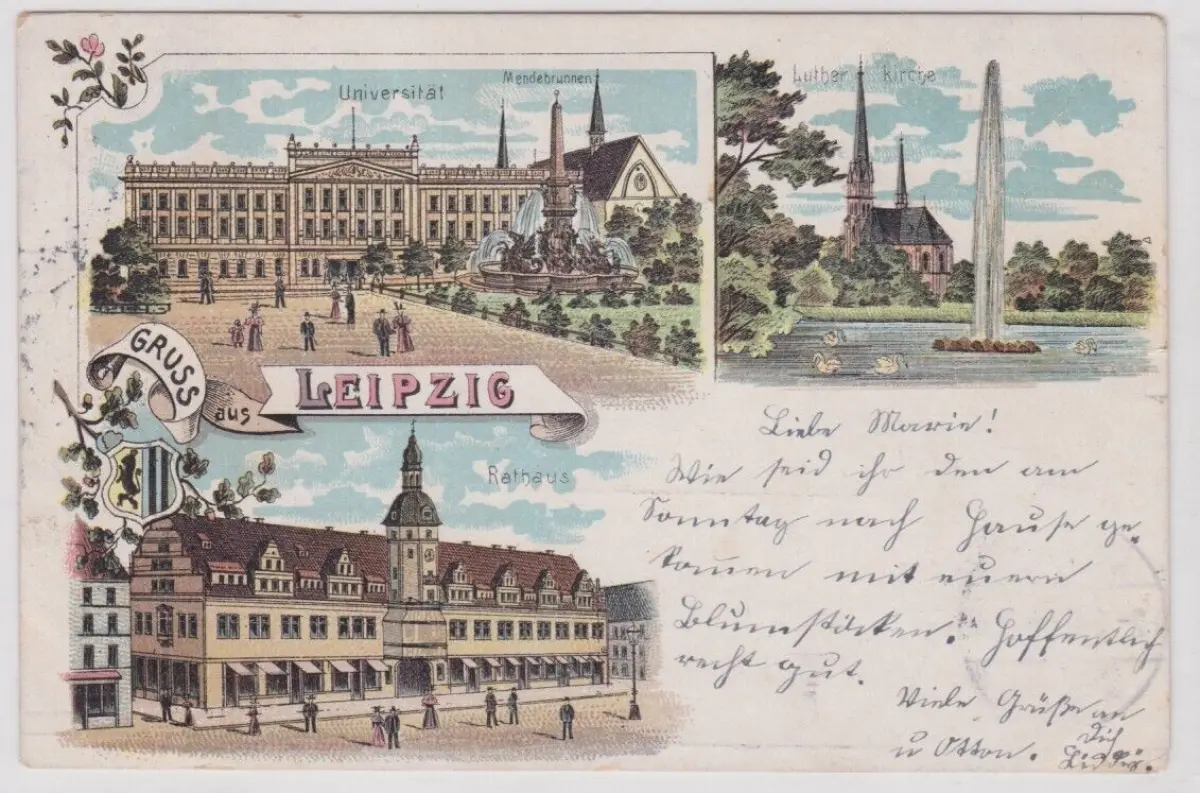 Universität
Mendebrunnen
Luther kirche
GRUSS
aus
LEIPZIG
Rathaus
Liebe Marie!
Wie seid ihr den am
Sonntag nach Hause ge-
kommen mit euern
Blumstöcken. Hoffentlich
recht gut.
Viele Grüße an
Dich
u Otton.